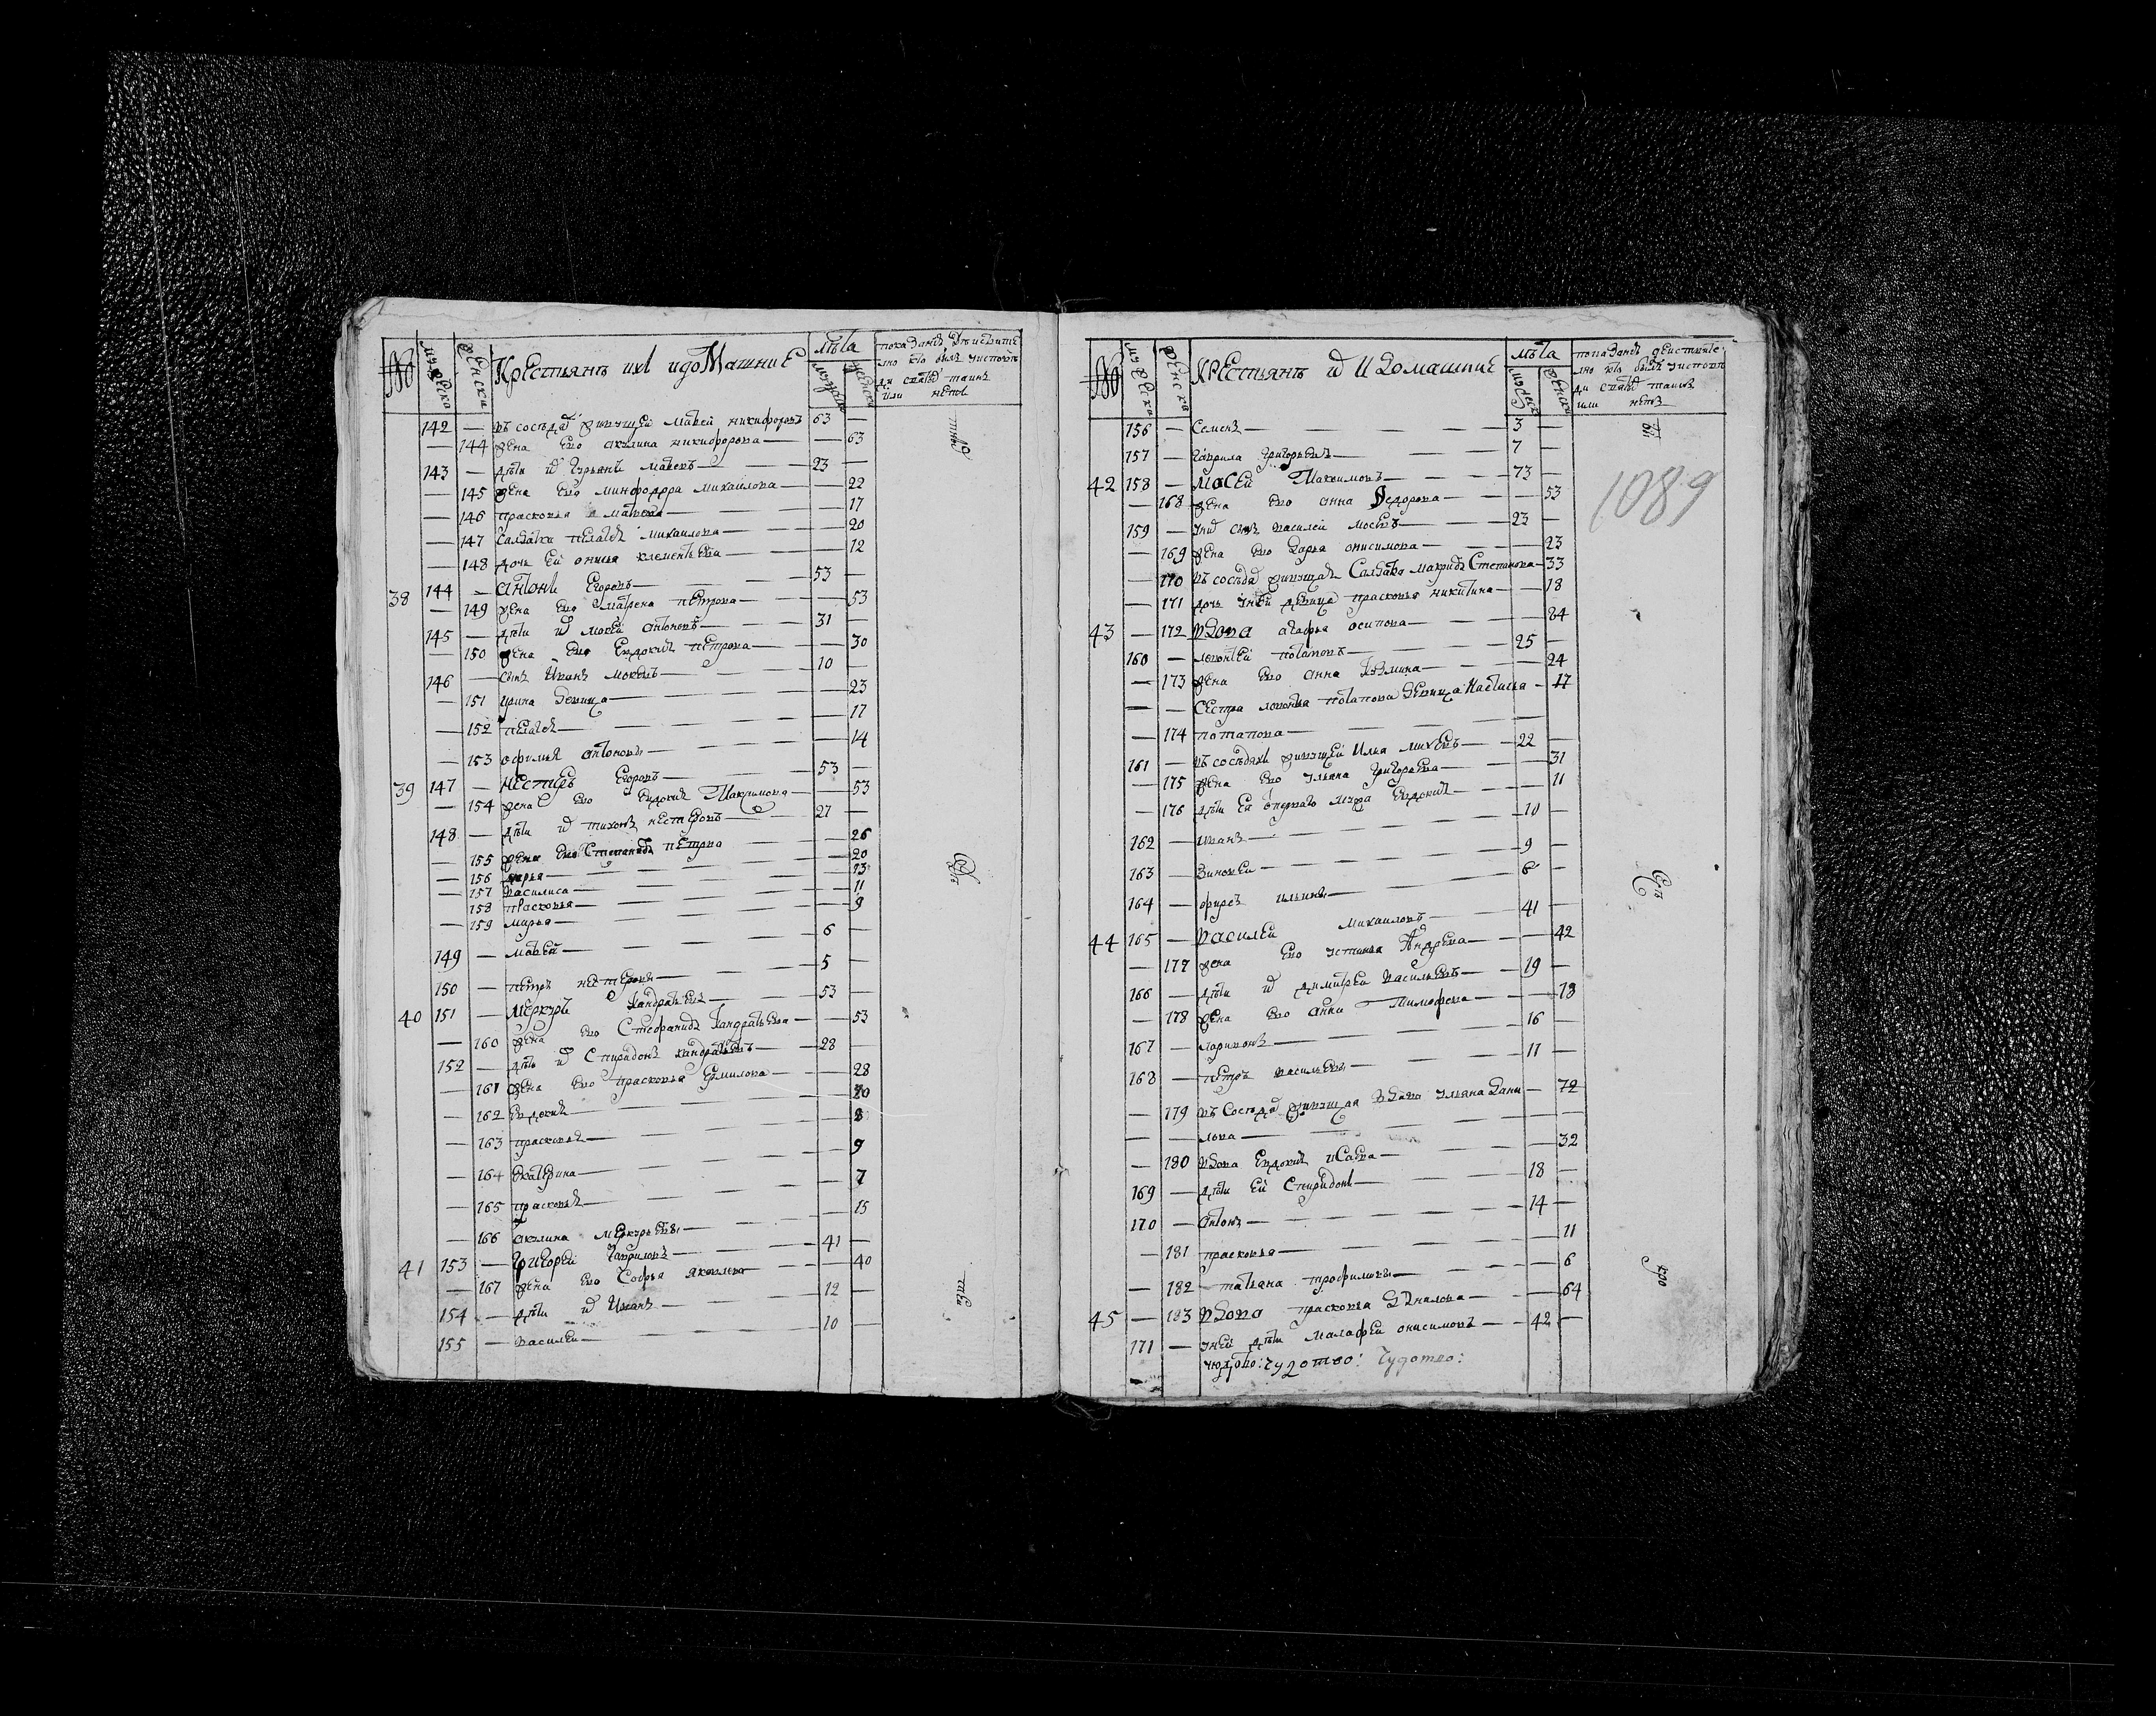 № мужеска женски Крестьянъ ихъ и домашние лѣта мужеска женски показанiе дѣйствително кто былъ у исповѣди и святаго таинъ или нетъ
142 — въ сосѣдяхъ живущей Матвей Никифоровъ 63 —
— 144 жена ево Акулина Никифорова — 63
143 — дѣти и Гурьянъ Матвеевъ 23 —
— 145 жена ево Минфодора Михаилова — 22
— 146 Прасковья Матвева — 17
— 147 Салдатка Пелагея Михаилова — 20
— 148 дочь ей Онисья Клементьева — 12
38 144 — Антонъ Егоровъ 53 —
— 149 жена ево Матрена Петрова — 53
145 — дѣти и Мокей Антоновъ 31 —
— 150 жена ево Евдокия Петрова — 30
146 — сынъ Иванъ Мокеевъ 10 —
— 151 Ирина девица — 23
— 152 Пелагея — 17
— 153 Офимья Антоновы — 14
39 147 — Нестеръ Егоровъ 53 —
— 154 жена ево Евдокия Максимова — 53
148 — дѣти и Тихонъ Нестеровъ 27 —
— 155 жена ево Степанида Петрова — 26
— 156 Марья — 20
— 157 Василиса — 13
158 Прасковья — 11
— 159 Марья — 9
149 — Матвей 6 —
150 — Петръ Нестеровы 5 —
40 151 — Меркурей Кандратьевъ 53 —
— 160 жена ево Стефанида Кандратьева — 53
152 — дѣти и Спиридонъ Кандратьевъ 28 —
— 161 жена ево Прасковья Ермилова — 28
— 162 Евдокия — 20
— 163 Прасковья — 8
— 164 Екатерина — 9
— 165 Прасковья — 7
— 166 Акулина Меркурьевы — 15
41 153 — Григорей Гавриловъ 41 —
— 167 жена ево Софья Яковлева — 40
154 — дѣти и Иванъ 12 —
155 — Василей 10 —
№ муж еска женска Крестьянъ и и домашние лѣта мужеск женски показанiе действително кто былъ у исповѣди и святаго таинъ или нетъ
156 — Семенъ 3 —
157 — Гаврила Григорьевъ 7 —
1089
42 158 — Мосей Максимовъ 73 —
— 168 жена ево Анна Федорова — 53
159 — унихъ сынъ Василей Мосеевъ 23 —
— 169 жена ево Дарья Онисимова — 23
— 170 въ сосѣдяхъ живущая Салдатка Макрида Степанова — 33
— 171 дочь у ней девица Прасковья Никитина — 18
43 — 172 вдова Агафья Осипова — 84
160 — Леонтей Потаповъ 25 —
— 173 жена ево Анна Кузмина — 24
— — Сестра Леонтья Потапова девица Настасья — 17
— 174 Потапова — —
161 — въ сосѣдяхъ живущей Илья Михеевъ 22 —
— 175 жена ево Ульяна Григорьева — 31
— 176 дѣти ея перваго мужа Евдокия — 11
162 — Иванъ 10 —
163 — Зиновей 9 —
164 — Фирсъ Ильины 6 —
44 165 — Василей Михаиловъ 41 —
— 177 жена ево Устинья Андрева — 42
166 — дѣти и Димитрей Васильевъ 19 —
— 178 жена ево Анна Тимофева — 18
167 — Ларивонъ 16 —
168 — Петръ Васильевы 11 —
— 179 въ сосѣдяхъ живущая вдова Ульяна Дани — 72
— — лова — —
— 180 вдова Евдокия Исаева — 32
169 — дѣти ей Спиридонъ 18 —
170 — Антонъ 14 —
— 181 Прасковья — 11
— 182 Татьяна Трофимовы — 6
45 — 183 вдова Прасковья Данилова — 64
171 — у ней дѣти Малафей Онисимовъ 42 —